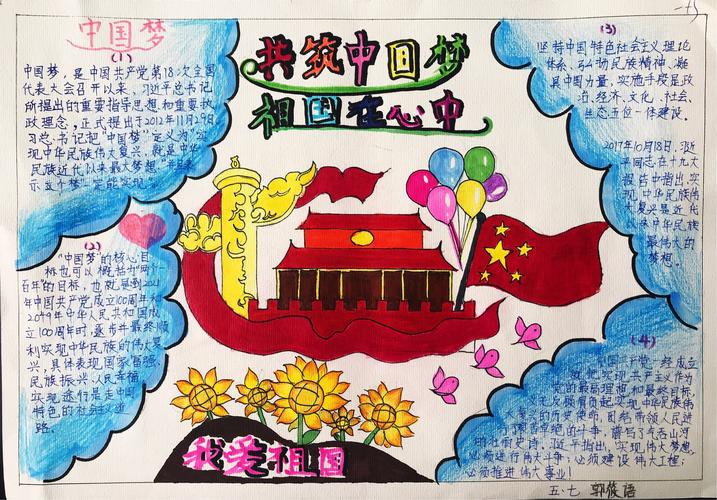 中国梦
共筑中国梦
祖国在心中
(1)
中国梦，是中国共产党第18次全国
代表大会召开以来，习近平总书记
所提出的重要指导思想和重要执
政理念，正式提出于2012年11月29日
习总书记把"中国梦"定义为"实
现中华民族伟大复兴，就是中华
民族近代以来最大梦想，并且表
示这个梦一定能实现。
(2)
"中国梦"的核心目
标也可以概括为"两个
百年"的目标，也就是到2021
年中国共产党成立100周年和
2049年中华人民共和国成
立100周年时，逐步并最终顺
利实现中华民族的伟大复
兴，具体表现国家富强、
民族振兴、人民幸福，
实现途径是走中国
特色的社会主义道
路。
(3)
坚持中国特色社会主义理论
体系、弘扬民族精神、凝
具中国力量，实施手段是政
治、经济、文化、社会、
生态五位一体建设。
2017年10月18日，习近
平同志在十九大
报告中指出，实
现中华民族伟
大复兴是近代
以来中华民族
最伟大的
梦想。
(4)
中国共产党一经成立
就把实现共产主义作为
党的最高理想和最终目标，
义无反顾肩负起实现中华民族伟
大复兴的历史使命，团结带领人民进
行了艰苦卓绝的斗争，谱写了气吞山河
的壮丽史诗。习近平指出，实现伟大梦想，
必须进行伟大斗争；必须建设伟大工程；
必须推进伟大事业！
我爱祖国
五·七